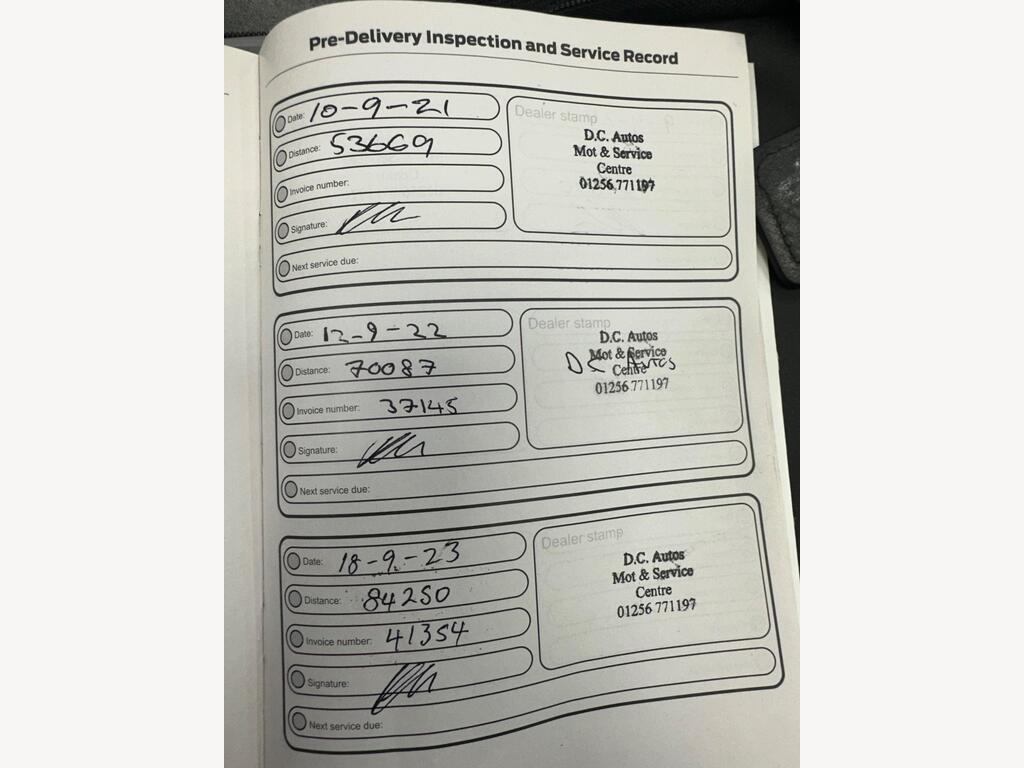 Pre-Delivery Inspection and Service Record
Date: 10-9-21
Distance: 53669
Invoice number:
Signature:
Next service due:
Dealer stamp
D.C. Autos
Mot & Service
Centre
01256 771197
Date: 12-9-22
Distance: 70087
Invoice number: 37145
Signature:
Next service due:
Dealer stamp
D.C. Autos
Mot & Service
DC Autos
Centre
01256 771197
Date: 18-9-23
Distance: 84250
Invoice number: 41354
Signature:
Next service due:
Dealer stamp
D.C. Autos
Mot & Service
Centre
01256 771197